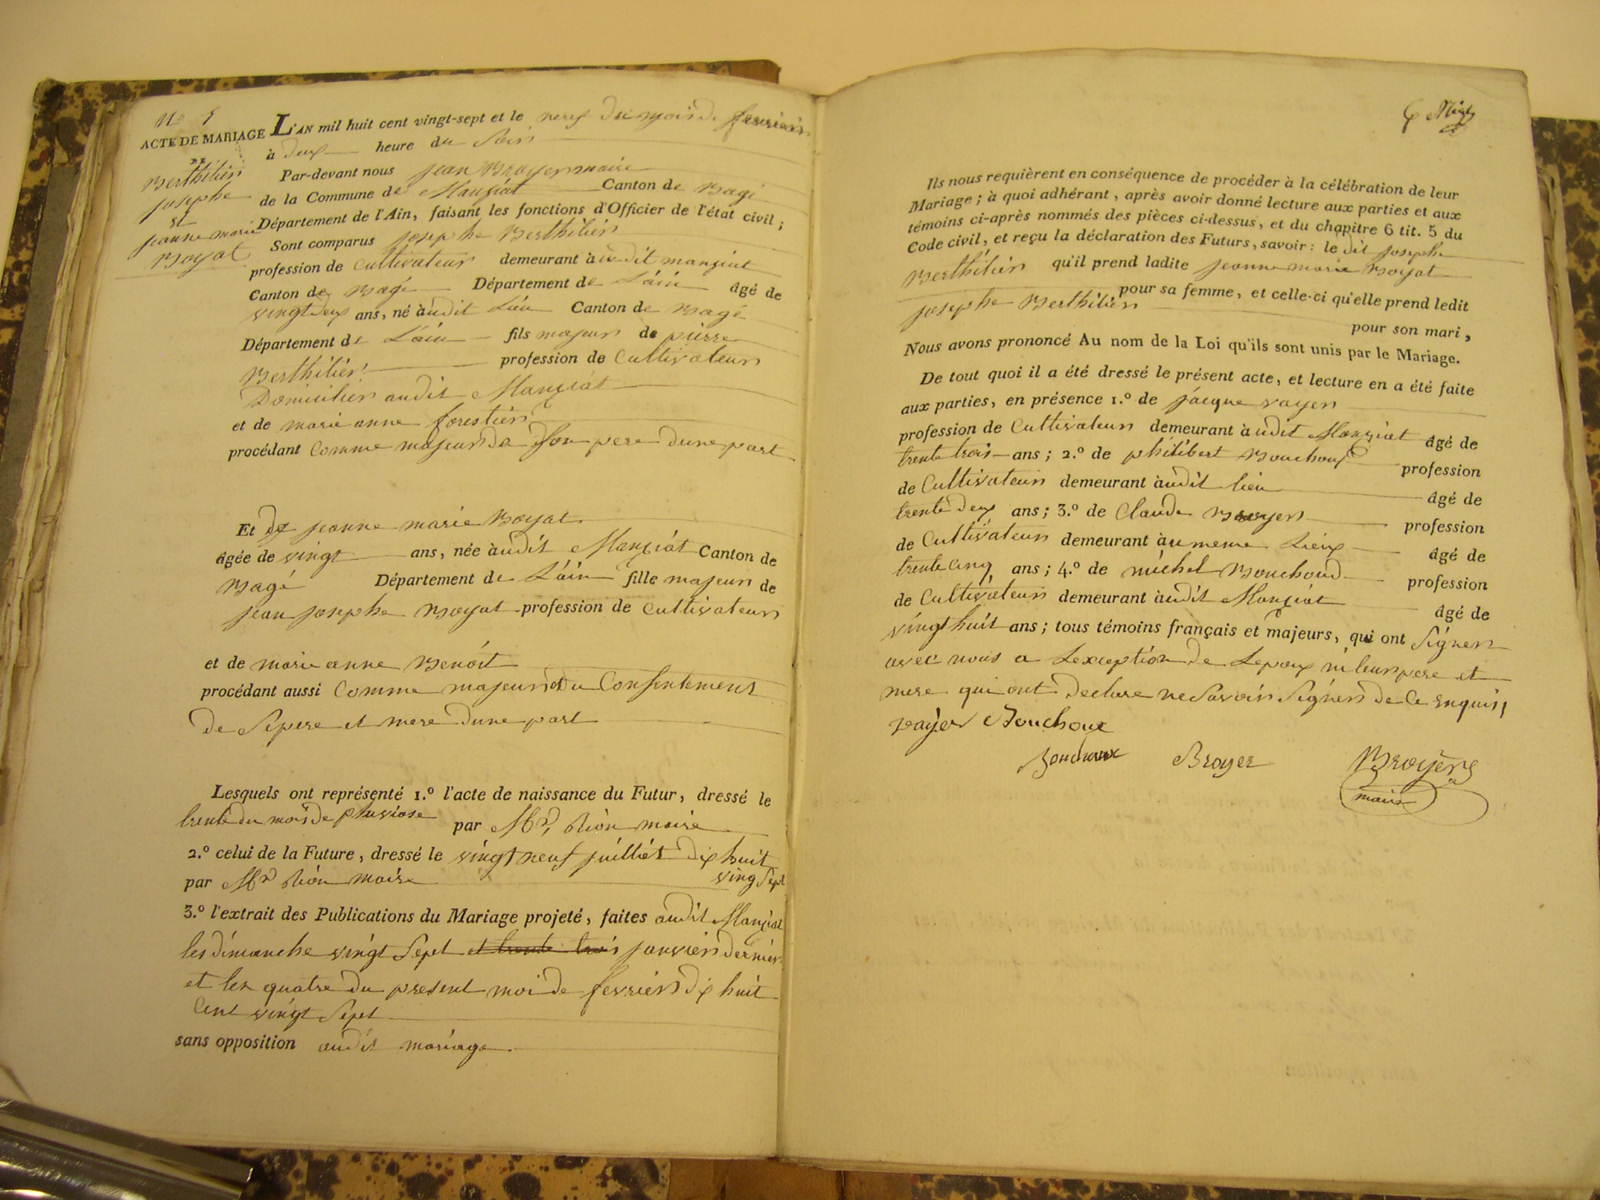 No 5
ACTE DE MARIAGE
DE
Berthilier
Josephe
et
jeanne marie
Boyat
L'AN mil huit cent vingt-sept et le neuf du mois de fevrier
à deux heure du soir
Par-devant nous jean Broyer maire
de la Commune de Manziat Canton de Bagé
Département de l'Ain, faisant les fonctions d'Officier de l'état civil;
Sont comparus josephe Berthilier
profession de cultivateur demeurant audit manziat
Canton de Bagé Département de L'ain âgé de
vingt deux ans, né audit Lieu Canton de Bagé
Département de L'ain fils majeur de pierre
Berthilier profession de Cultivateur
Domicilier audit Manziat
et de marie anne forestier
procédant comme majeur de son pere dune part
Et de jeanne marie Boyat
âgée de vingt ans, née audit Manziat Canton de
Bagé Département de L'ain fille majeur de
jean josephe Boyat profession de cultivateur
et de marie anne Benoit
procédant aussi comme majeur du Consentement
de Sepere et mere dune part
Lesquels ont représenté 1.º l'acte de naissance du Futur, dressé le
trente du mois de pluviose par Mr Rion maire
2.º celui de la Future, dressé le vingt neuf juilliet dix huit
ving Sept
par Mr Rion maire
3.º l'extrait des Publications du Mariage projeté, faites audit Manziat
les dimanche vingt Sepet et trente trois janvier dernier
et les quatre du present moi de fevrier dix huit
Cent vingt Sepet
sans opposition audit mariage.
Ils nous requièrent en conséquence de procéder à la célébration de leur
Mariage; à quoi adhérant, après avoir donné lecture aux parties et aux
témoins ci-après nommés des pièces ci-dessus, et du chapitre 6 tit. 5 du
Code civil, et reçu la déclaration des Futurs, savoir: le dit josephe
Berthilier qu'il prend ladite jeanne marie Boyat
pour sa femme, et celle-ci qu'elle prend ledit
josephe Berthilier
pour son mari,
Nous avons prononcé Au nom de la Loi qu'ils sont unis par le Mariage.
De tout quoi il a été dressé le présent acte, et lecture en a été faite
aux parties, en présence 1.º de jacque vayer
profession de Cultivateur demeurant audit Manziat âgé de
trente trois ans; 2.º de philibert Bouchoux profession
de Cultivateur demeurant audit lieu âgé de
trente deux ans; 3.º de Claude Broyer profession
de Cultivateur demeurant au meme Lieux âgé de
trente cinq ans; 4.º de michel Bouchoud profession
de Cultivateur demeurant audit Manziat âgé de
vingt huit ans; tous témoins français et majeurs, qui ont Signer
avec nous a Lexception de Lepoux ni leur pere et
mere qui ont declare ne Savoir Signer de ce enquis
vayer Bouchoux
Bouchoux Broyer Broyer
maire